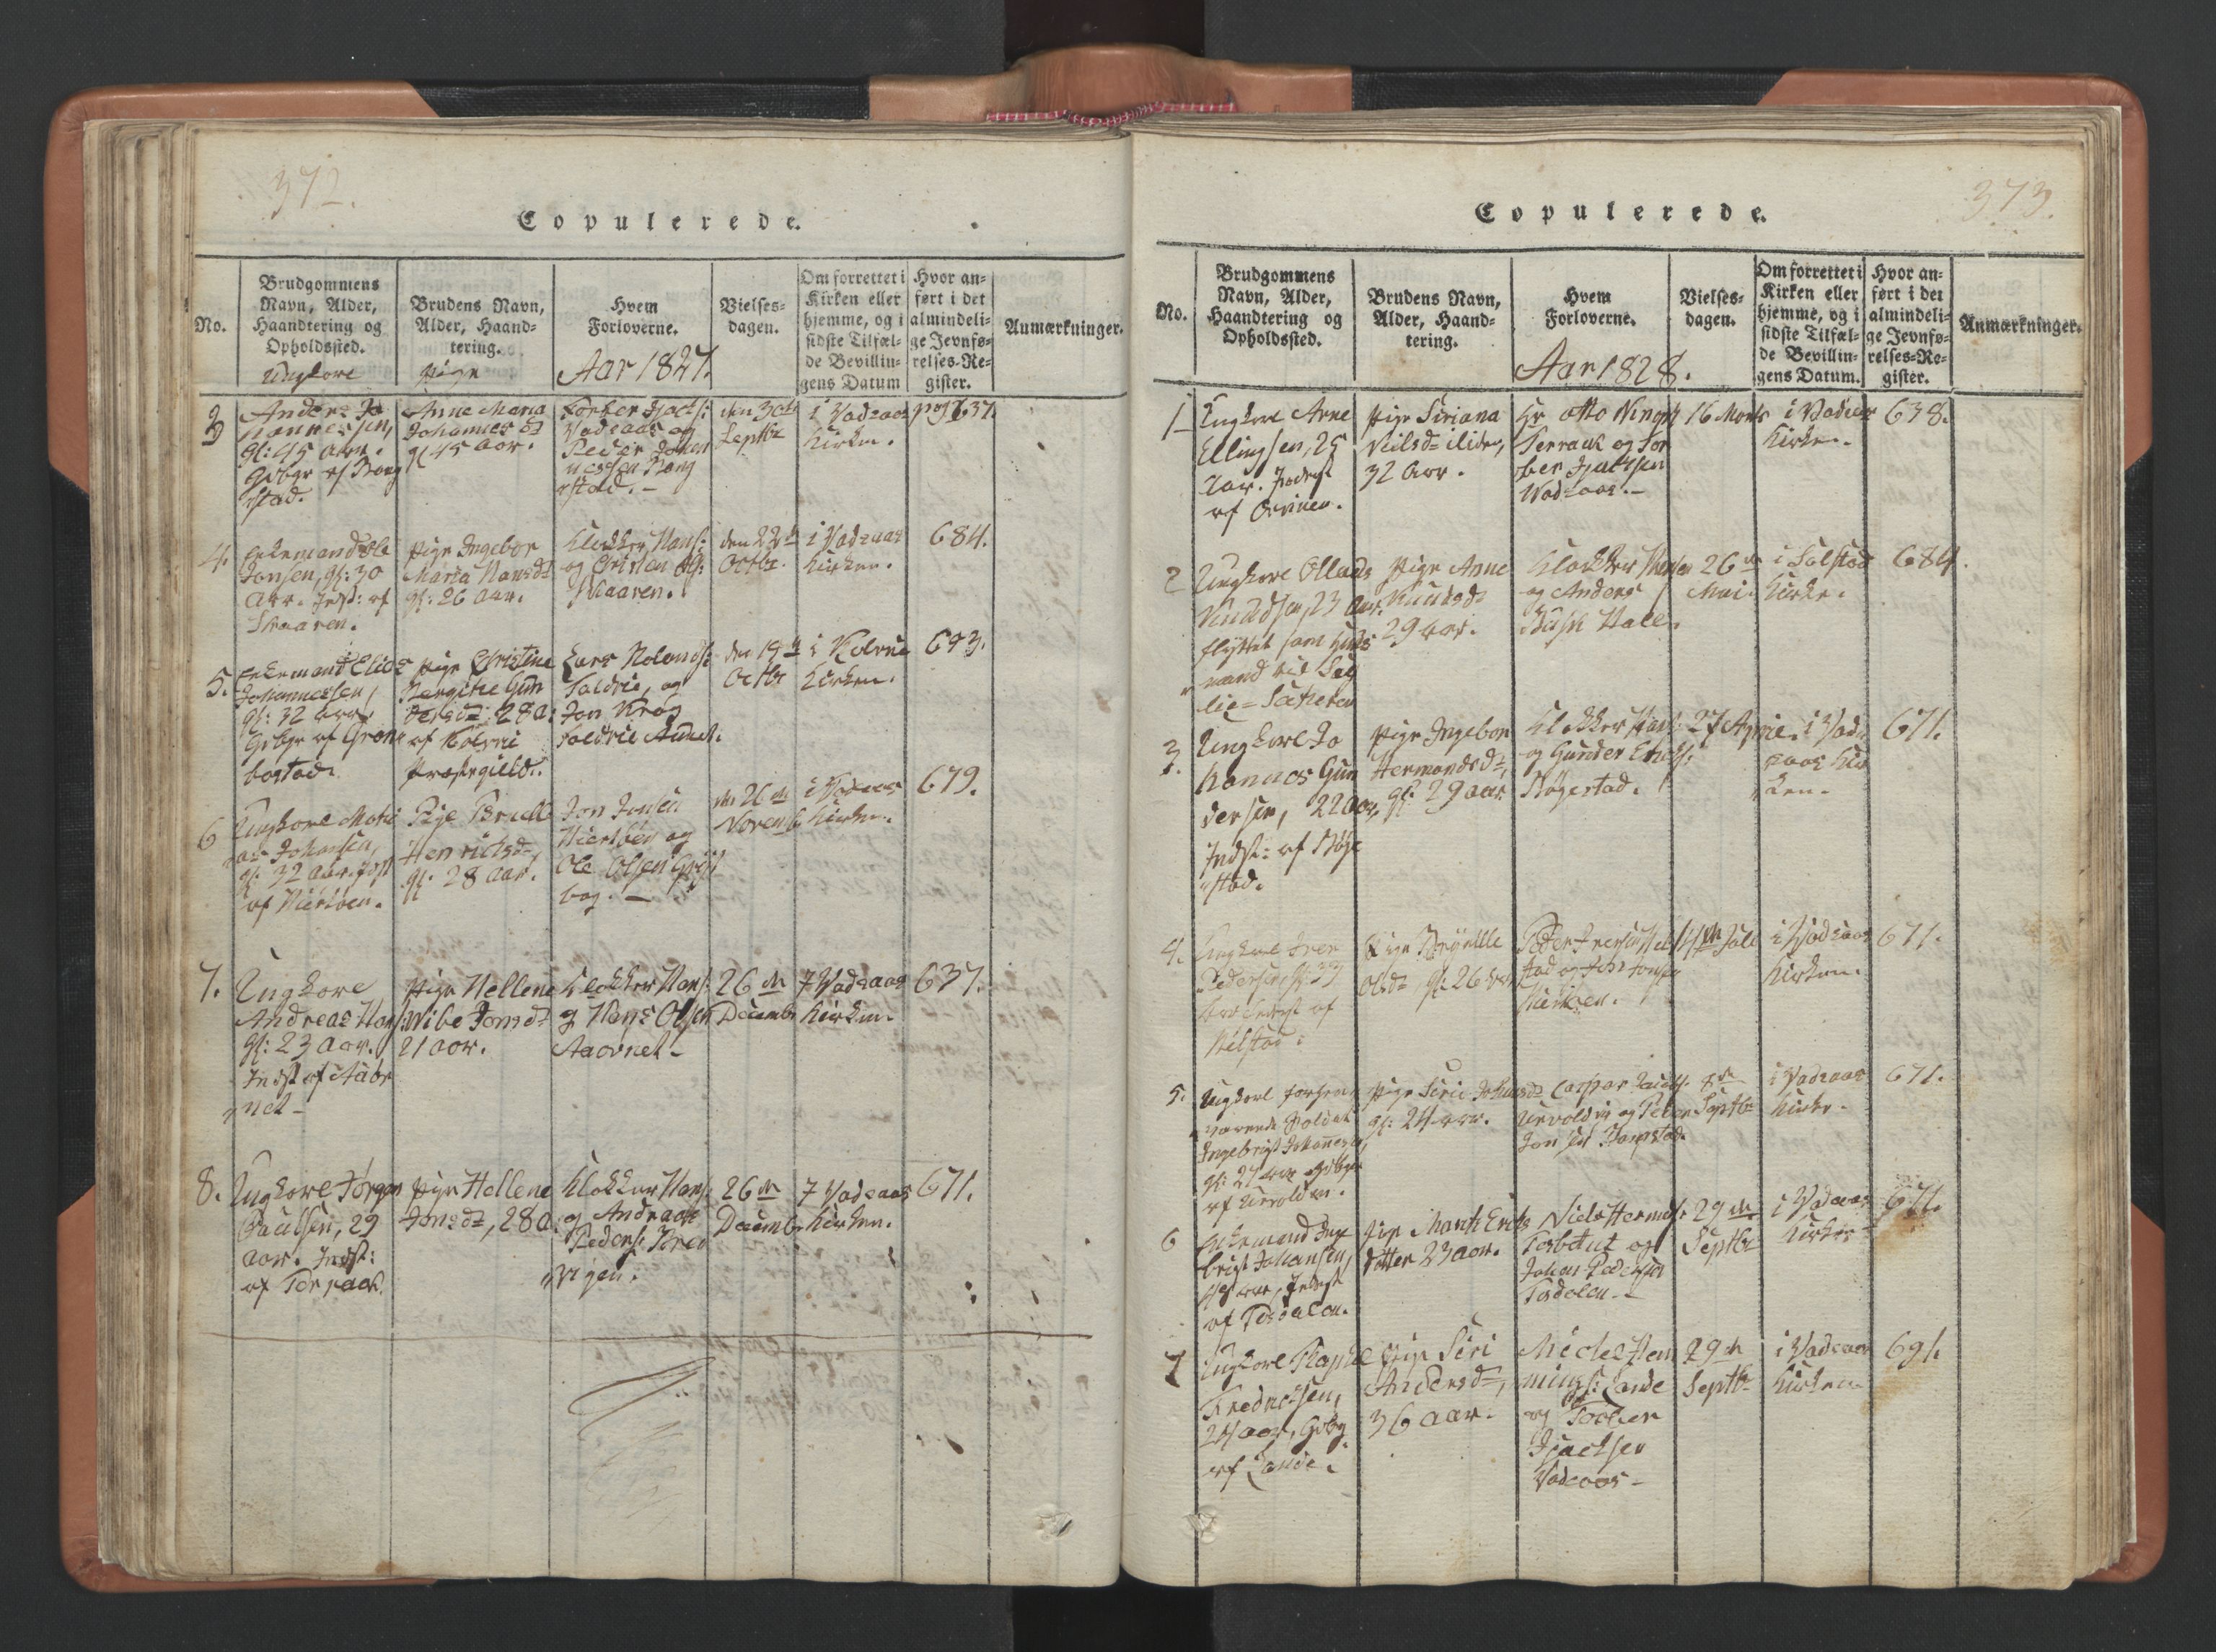 372.
Copulerede.
No.
Brudgommens
Navn, Alder,
Haandtering og
Opholdssted.
Brudens Navn,
Alder, Haand-
tering.
Hvem
Forloverne.
Vielses-
dagen.
Om forrettet i
Kirken eller
hjemme, og i
sidste Tilfæl-
de Bevillin-
gens Datum
Hvor an-
ført i det
almindeli-
ge Jevnfø-
relses-Re-
gister.
Anmærkninger.
Ungkarl
Pige
Aar 1827.
3
Anders Jo
hannessen,
gl: 45 aar.
Gdbgr af Borg
stad.
Anne Maria
Johannesd
gl 45 aar.
Torber
Vadeaas og
Peder Johan
nessen Borg
stad. –
den 30te
Septbr
i Vadsaas
Kirken.
pag 637.
4.
Enkemand Ole
Jonsen, gl: 30
Aar. Indst: af
Skaaren.
Pige Ingebor
Maria Hansd
gl: 26 Aar.
Klokker Hans:
og Cristen
Skaaren.
den 22de
Octbr.
i Vadsaas
Kirken.
684.
5.
Enkemand Elias
Johannessen,
gl: 32 aar
Gdbgr af Grøn
bostad.
Pige Christine
Bergithe Gun
dersd: 28 a:
af Kolvrei
Præstegield.
Lars Rolands:
Saldrie, og
Jon Krog
soldrie
den 19de
Octbr
i Kolvrei
Kirken.
673.
6
Ungkarl Mathi
as Johansen,
gl: 32 aar. Indst
af Kierlsen.
Pige Brille
Henrichsd
gl. 28 aar.
Jon Jonsen
og
Ole Olsen
bog. –
den 26de
Novemb
i Vadsaas
Kirken.
679.
7.
Ungkarl
Andreas Hans:
gl: 23 aar.
Indst af Aabr
net –
Pige Hellene
Wibe Jonsd
21 aar.
Klokker Hans:
og Hans Olsen
Aaornet –
26de
Decembr
i Vadsaas
Kirken
637.
8.
Ungkarl Jørgen
Paulsen, 29
aar. Indst:
af Terraak.
Pige Hellene
Jonsd, 28 a:
Klokker Hans:
og Andreas
Peders: Kred
vigen.
26de
Decembr
i Vadsaas
Kirken.
671.
373.
Copulerede.
No.
Brudgommens
Navn, Alder,
Haandtering og
Opholdssted.
Brudens Navn,
Alder, Haand-
tering.
Hvem
Forloverne.
Vielses-
dagen.
Om forrettet i
Kirken eller
hjemme, og i
sidste Tilfæl-
de Bevillin-
gens Datum.
Hvor an-
ført i det
almindeli-
ge Jevnfø-
relses-Re-
gister.
Anmærkninger.
Aar 1828.
1
Ungkarl Arne
Ellingsen, 25
Aar. Inderst
af
Pige Siriana
Nielsd
32 Aar.
Hr Otto
Terraak og Tor
ber
Vadsaas. –
16 Marts
i Vadsaas
Kirken.
638.
2
Ungkarl Ollaus
Knudsen, 23 Aar.
flyttet som Huus
mand til Seg
lie-
Pige Anne
Knudsd
29 aar.
Klokker Hansen
og Anders
26de
Mai
i Solstad
Kirke.
684.
3.
Ungkarl Jo
hannes Gun
dersen, 22 aar,
Indst: af Bøge
stad.
Pige Ingebor
Hermandsd,
gl: 29 aar.
Klokker Hans:
og Gunder Erichs:
Bøgestad.
27 April.
i Vad-
saas Kir
ken.
671.
4.
Ungkarl Iver
Pedersen gl: 33
aar Inderst af
Pige Brynille
Olsd gl: 26 aar
Peder
stad og Jon Jonsen
14de Juli
i Vadsaas
Kirken.
671.
5.
Ungkarl forhen
værende Soldat
Ingebrigt Johannesen,
gl: 27 aar Gdbgr
af
Pige Sirie Johansd
gl: 24 aar.
Caspar
og Peder
Jonsen
8de
Septbr
i Vadsaas
Kirke.
671.
6
Enkemand Inge
brigt Johansen,
48 aar, Inderst
af Tosdalen.
Pige Marith Erichs
datter 23 aar.
Niels Hermans:
Tosbotnet og
Johan Pedersen
Tosdalen. –
29de
Septbr
i Vadsaas
Kirken
671.
7
Ungkarl
Fredricksen,
24 aar, Gdbg
af Lande.
Pige Siri
Andersd,
36 aar.
Michel Hem
mings: Lande
og Torber
Vadsaas –
29de
Septbr
i Vadsaas
Kirken
691.